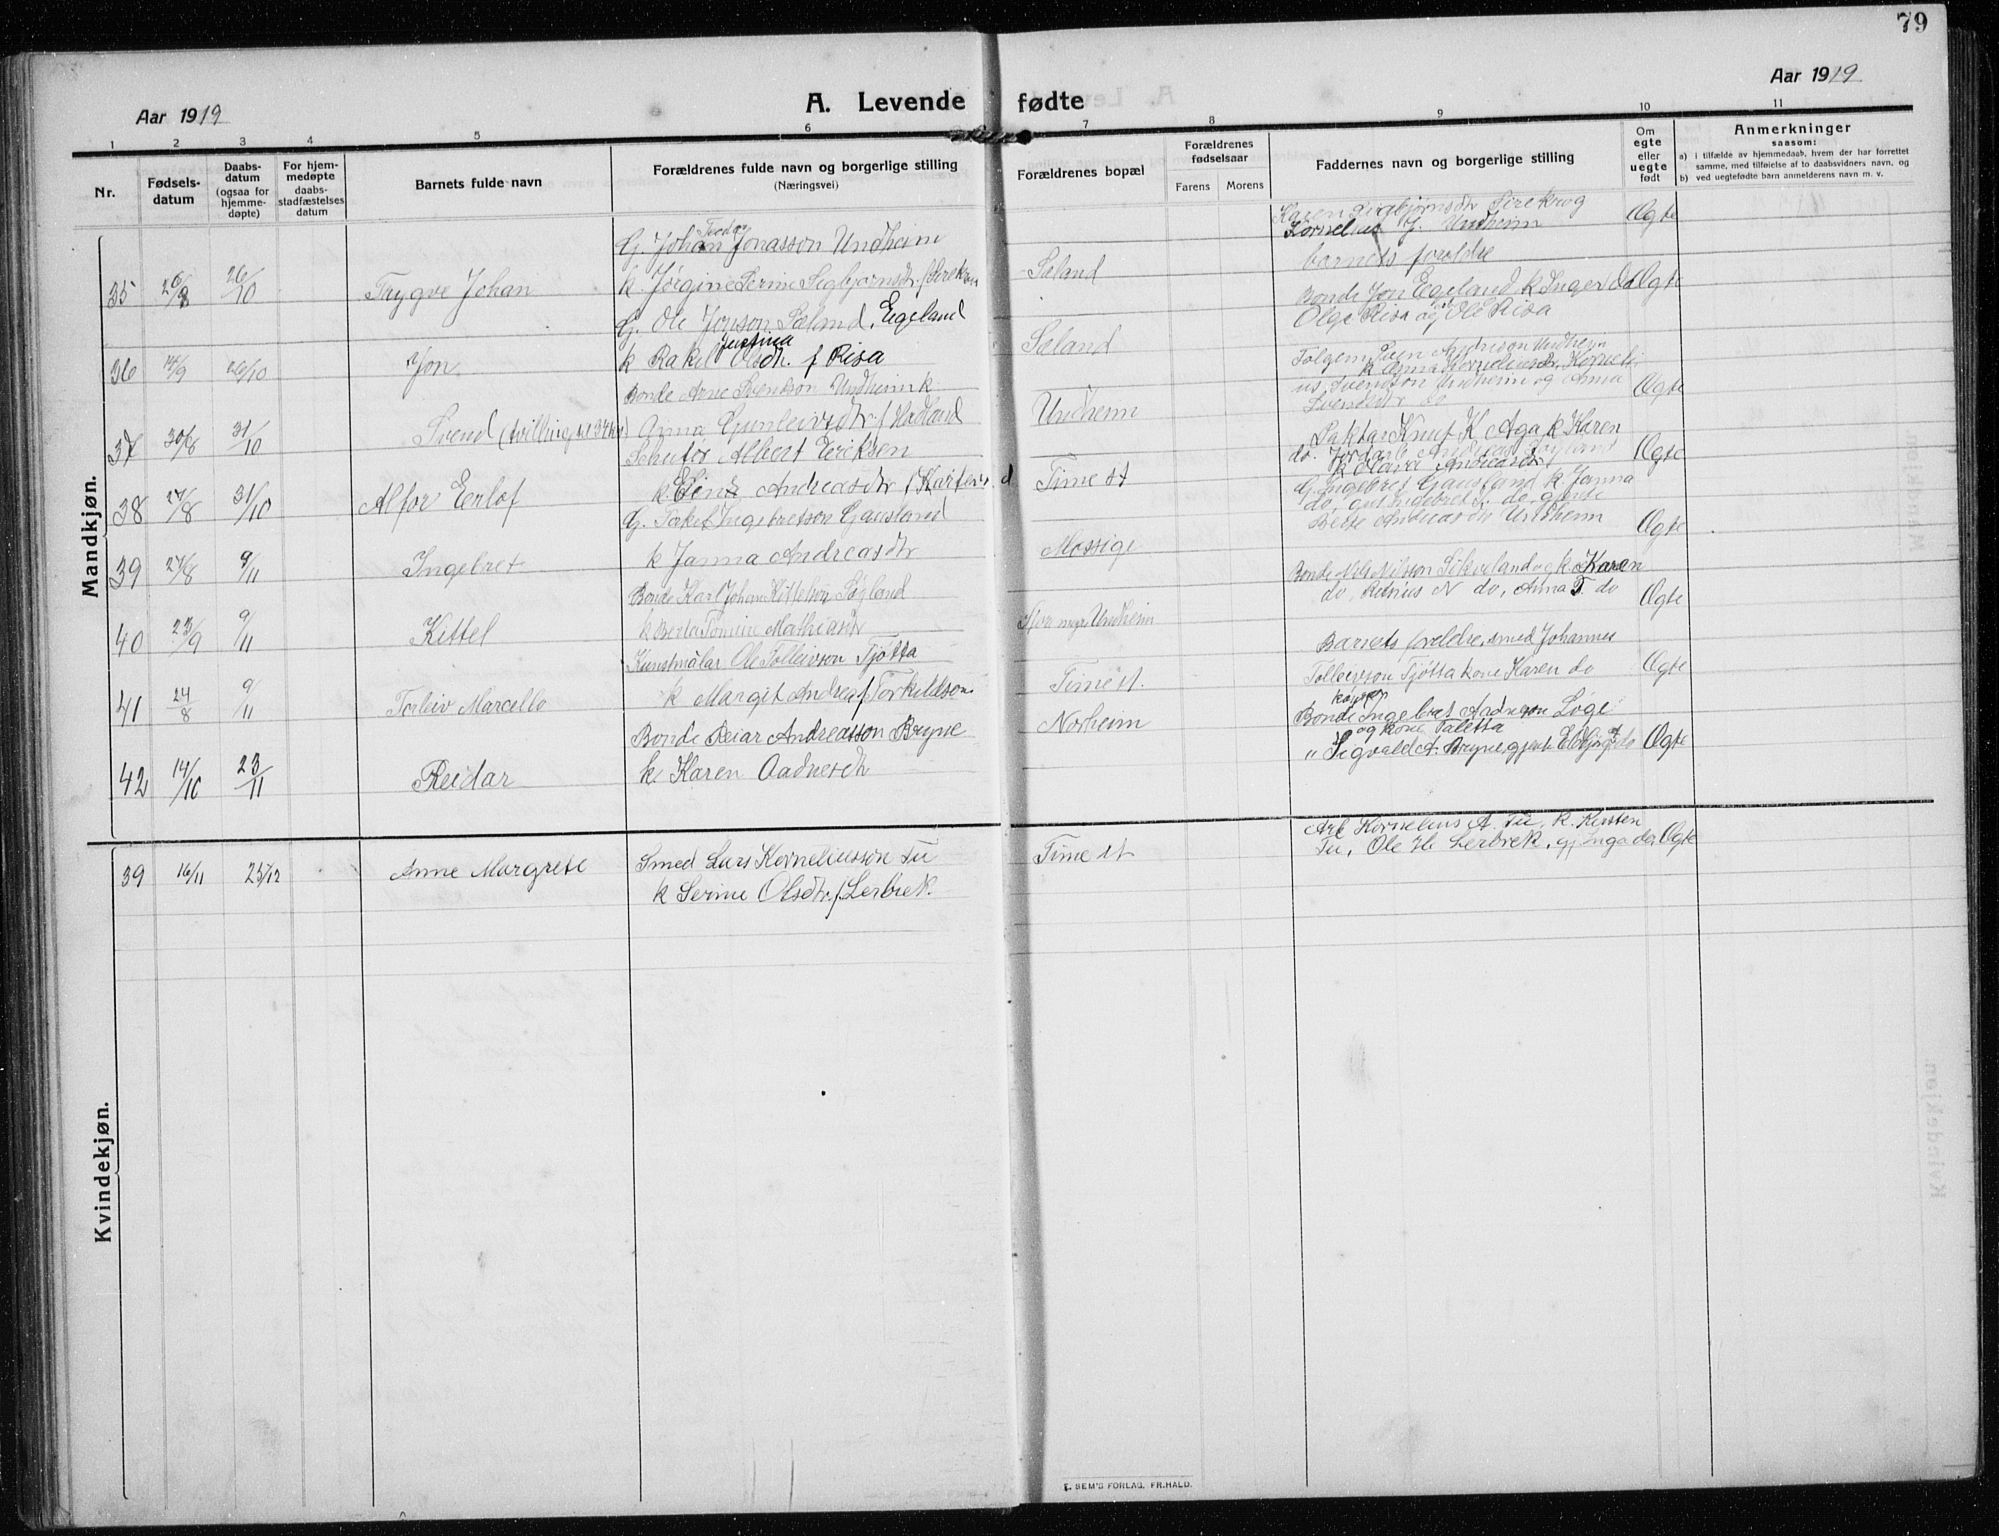 79
Aar 1919
A. Levende fødte
Aar 1919
1 2 3 4 5 6 7 8 9 10 11
Nr.
Fødsels-
datum
Daabs-
datum
(ogsaa for
hjemme-
døpte)
For hjem-
medøpte
daabs-
stadfæstelses
datum
Barnets fulde navn
Forældrenes fulde navn og borgerlige stilling
(Næringsvei)
Forældrenes bopæl
Forældrenes
fødselsaar
Farens Morens
Faddernes navn og borgerlige stilling
Om
egte
eller
uegte
født
Anmerkninger
saasom:
a) i tilfælde av hjemmedaab, hvem der har forrettet
samme, med tilføielse af to daabsvidners navn, og
b) ved uegtefødte barn anmelderens navn m. v.
Mandkjøn.
35 26/8 26/10 Trygve Johan
G. Johan Jonasson Undheim
k. Jørgine Serine Sigbjørnsdr. f Sirekrog
Sæland
Karen Sigbjørnsdr Sirekrog
Kornelius G. Undheim
barnets foreldre
Ægte
36 14/9 26/10 Jon
G. Ole Jonson Sæland, Egeland
k Rakel Justina Olsdr. f Risa
Sæland
Bonde Jon Egeland k Inger do
Olga Risa og Ole Risa
Ægte
37 30/8 31/10 Svend (tvilling til 34 kv)
Bonde Arne Svenkson Undheim k.
Anna Gunleivsdtr. f Hadland
Undheim
Svendson Undheim og Anna
Svendsdtr do
Ægte
38 27/8 31/10 Alfor Erlof
Albert Eriksen
k. Andreasdtr f
Time st
Knut K Aga k Karen
Ægte
39 27/8 9/11 Ingebret
G. Taket Ingebretsson Gausland
k Janna Andreasdtr
Mossige
G. Ingebret Gausland k Janna
do, gut Ingebret T. do, gjente
Berte Andreasdtr Undheim
Ægte
40 23/9 9/11 Kittel
Bonde Karl Johan Kittelson Søyland
k Berta Tomine Mathiasdtr
Undheim
Bonde Nils Nilsson Sikveland og k. Karen
do, N do, Anna T. do
Ægte
41 24/8 9/11 Torleiv Marcello
Kunstmålar Ole Tolleivson Tjøtta
k Margit Andrea f Torkildson
Time st.
Barnets foreldre, smed Johannes
Tolleivson Tjøtta kone Karen do
Ægte
42 14/10 23/11 Reidar
Bonde Reiar Andreasson Bryne
k Karen Aadnesdtr
Norheim
Bonde Ingebret Løge
og kone Taletta
" Sigvald A. Bryne gjente
Ægte
Kvindekjøn.
39 16/11 25/12 Anne Margrete
Smed Lars Korneliusson Tu
k Serine Olsdtr. f Lerbrek.
Time st
Arb Kornelius A. Tu, k. Kirsten
Tu, Ole H Lerbrek, gj Inga do,
Ægte
E. SEM'S FORLAG, FR.HALD.